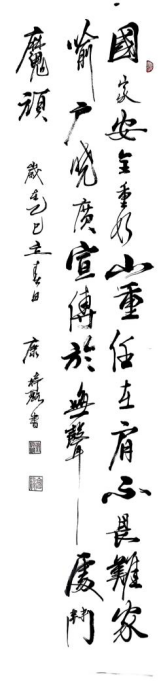 國家安全重如山重任在肩不畏難家
喻户曉廣宣傳於無聲處鬥
魔頑
歲在乙巳立春日 康
書